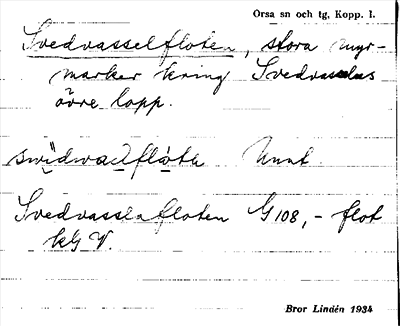 Orsa sn och tg, Kopp. l.
Svedvasselfloten, stora myr-
marker kring Svedvasslas
övre lopp.
Svedvasslafloten G 108, - flot
kG V.
Bror Lindén 1934